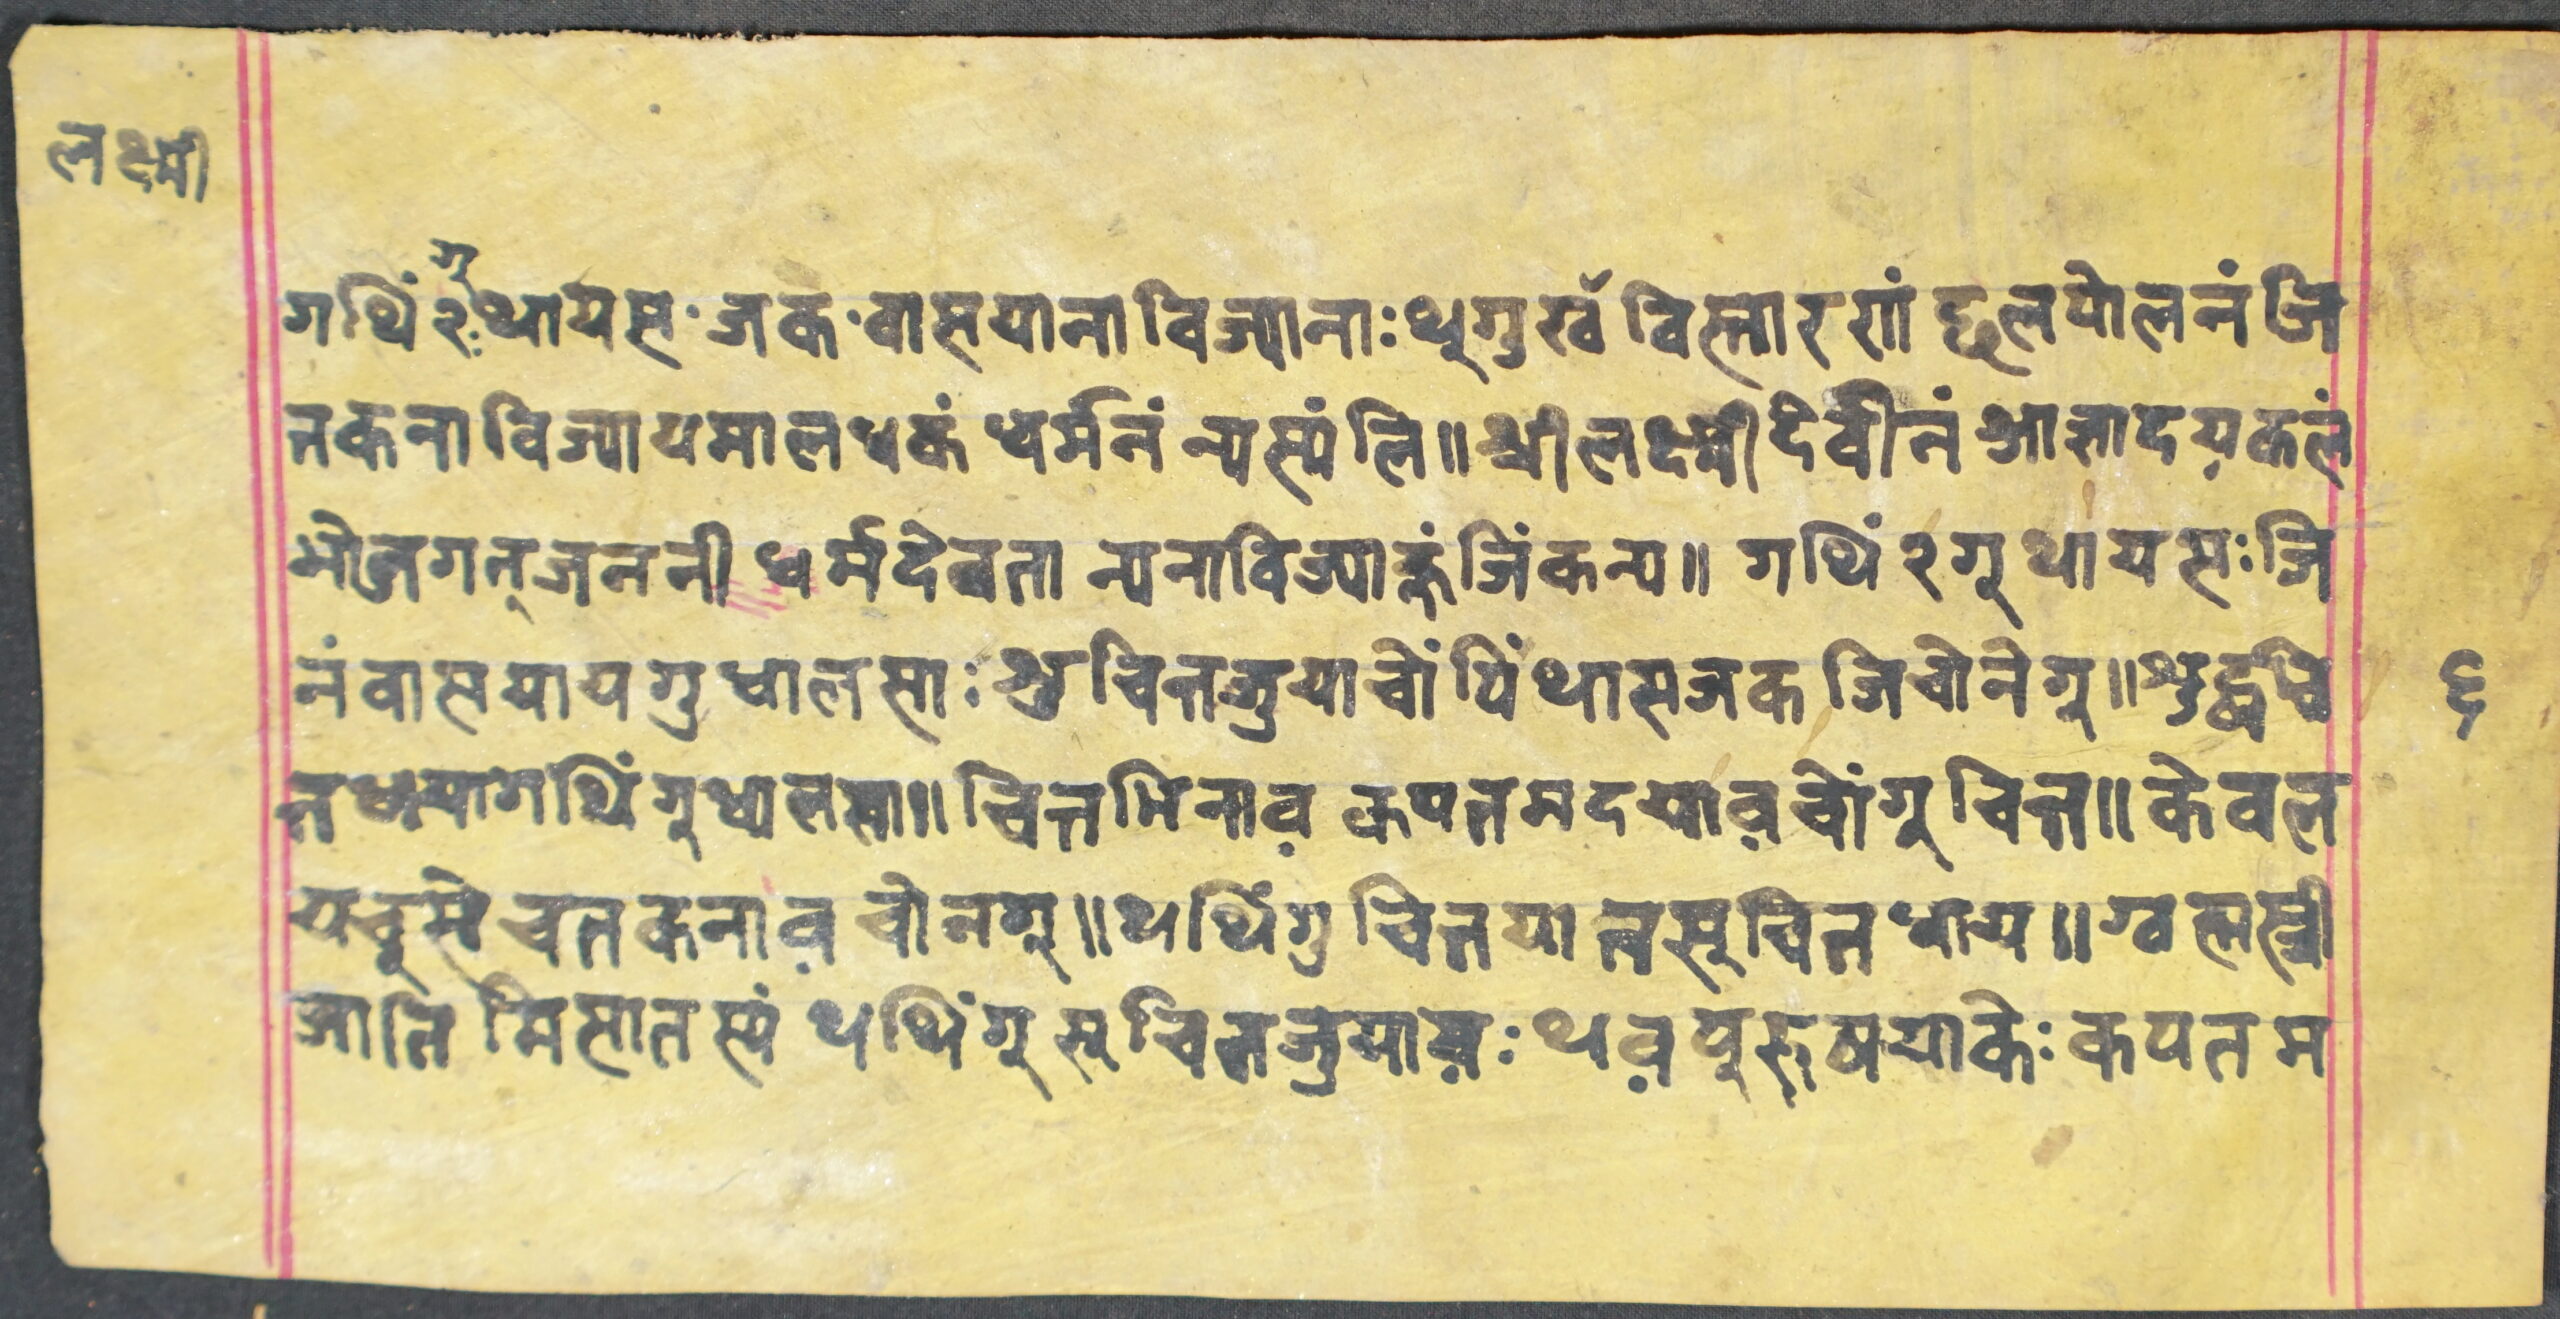 लक्ष्मी
गु
गथिं२ःथायसः जक वासयाना विज्यानाः थुगुखँ विस्तारगां छलपोलनं जि
तकना विज्यायमाल धकं धर्मनं न्यस्यंलि॥ श्रीलक्ष्मीदेवीनं आज्ञादयकलं
भोजगत्जननी धर्मदेवता न्यनाविज्याहुं जिंकन्य॥ गथिं२गू थायसः जि
नं वासयायगु धालसाः शुचित्तजुयाचोंपिं थासजक जिचोनेगू॥ शुद्धचि
त्तधयागथिंगू धालसा॥ चित्तभिनाव़ कपतमदयाव़चोंगू चित्त॥ केवल
यचुसे चतकनाव़ चोनगू॥ थथिंगु चित्तयातसुचित्त धाय॥ ग्वह्मस्त्री
जाति मिसातस्यं थथिंगू सुचित्तजुयाव़ः थव़ पुरुषयाकेः कपतम
६